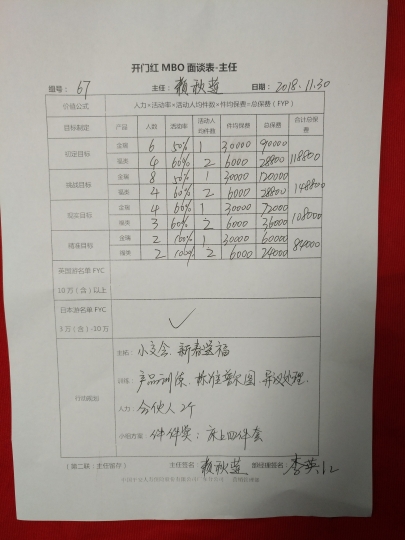 开门红 MBO 面谈表-主任
组号： 67 主任： 赖秋莲 日期： 2018.11.30
价值公式 人力×活动率×活动人均件数×件均保费=总保费（FYP）
目标制定 产品 人数 活动率 活动人均件数 件均保费 总保费 合计总保费
初定目标 金瑞 6 50% 1 30000 90000 118800
福类 4 60% 2 6000 28800
挑战目标 金瑞 8 50% 1 30000 120000 148800
福类 4 60% 2 6000 28800
现实目标 金瑞 4 60% 1 30000 72000 108000
福类 3 60% 2 6000 36000
精准目标 金瑞 2 100% 1 30000 60000 84000
福类 2 100% 2 6000 24000
英国游名单 FYC
10 万（含）以上
日本游名单 FYC ✓
5 万（含）-10 万
行动规划
主拓： 小交会、新春送福
训练： 产品训练、标准普尔图、异议处理、
人力： 合伙人 2个
小组方案： 件件奖：床上四件套
（第二联：主任留存） 主任签名 赖秋莲 部经理签名：